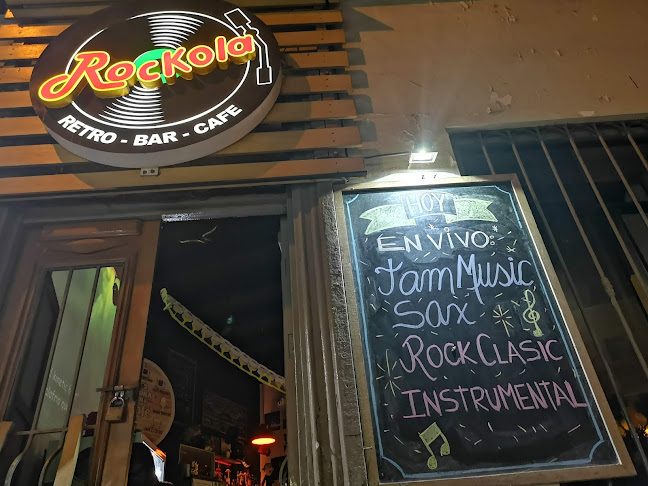 Rockola
RETRO - BAR - CAFE
HOY
EN VIVO:
Jam Music
Sax
ROCK CLASIC
INSTRUMENTAL